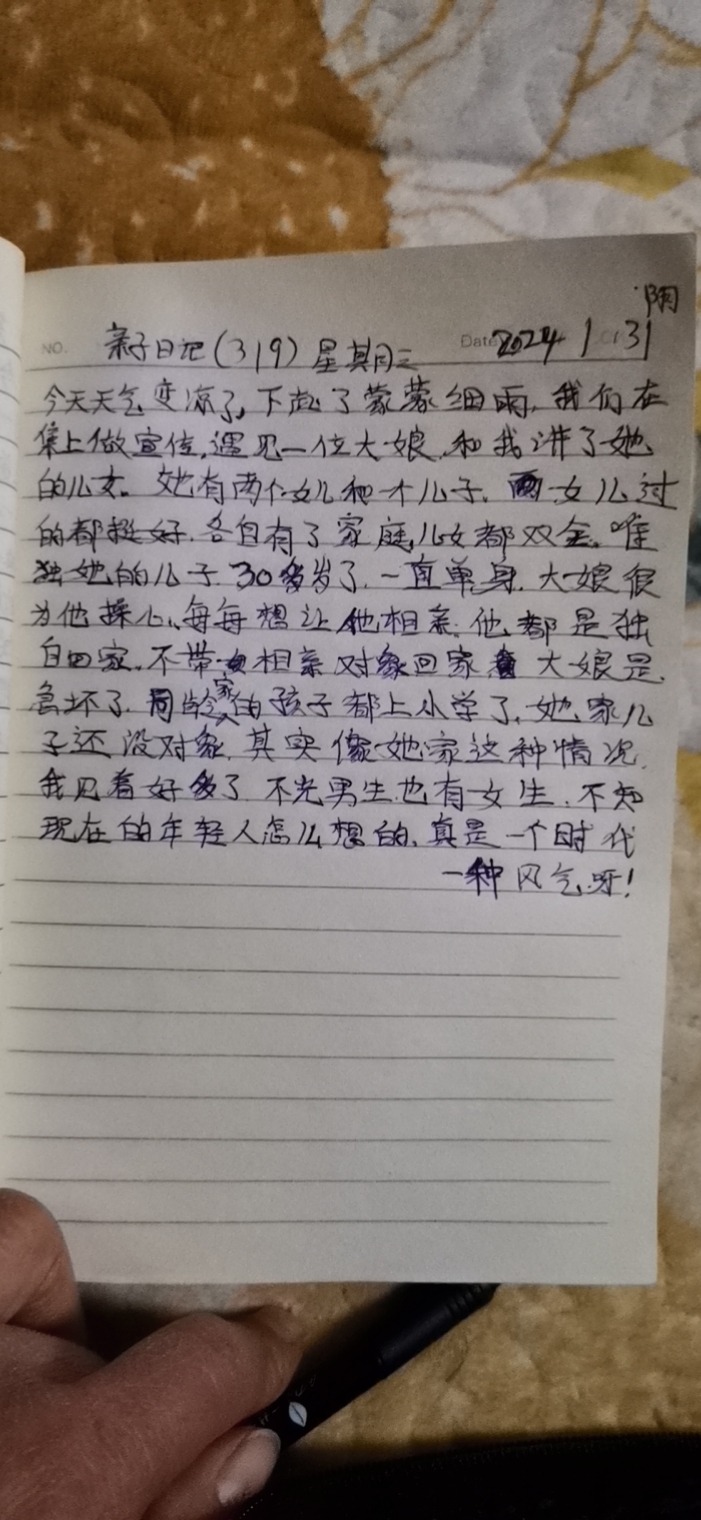 阴
NO. 亲子日记(319) 星期三 Date 2024 1 31
今天天气变凉了,下起了蒙蒙细雨,我们在
集上做宣传,遇见一位大娘,和我讲了她
的儿女。她有两个女儿和一个儿子,两女儿过
的都挺好,各自有了家庭,儿女都双全,唯
独她的儿子30多岁了,一直单身,大娘很
为他操心,每每想让他相亲,他都是独
自回家,不带相亲对象回家,大娘是
急坏了,同龄人家的孩子都上小学了,她家儿
子还没对象,其实像她家这种情况,
我见着好多了,不光男生也有女生,不知
现在的年轻人怎么想的,真是一个时代
一种风气呀!